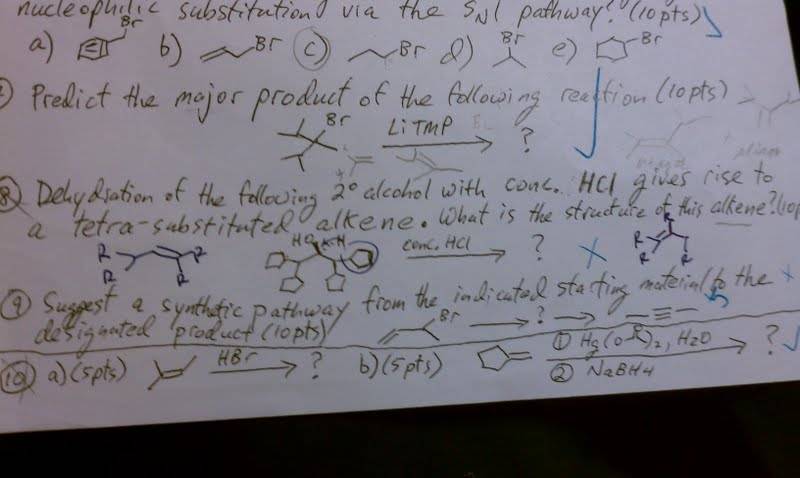 nucleophilic substitution via the SN1 pathway? (10pts)
a) Br b) Br c) Br d) Br e) Br
Predict the major product of the following reaction (10pts)
Br LiTMP ?
⑧ Dehydration of the following 2° alcohol with conc. HCl gives rise to
a tetra-substituted alkene. What is the structure of this alkene? (10p
R R R R HO H conc. HCl ? X R R R
⑨ Suggest a synthetic pathway from the indicated starting material to the
designated product (10pts) Br ?
⑩ a) (5pts) HBr ? b) (5pts) ① Hg(O-R)2, H2O ?
② NaBH4